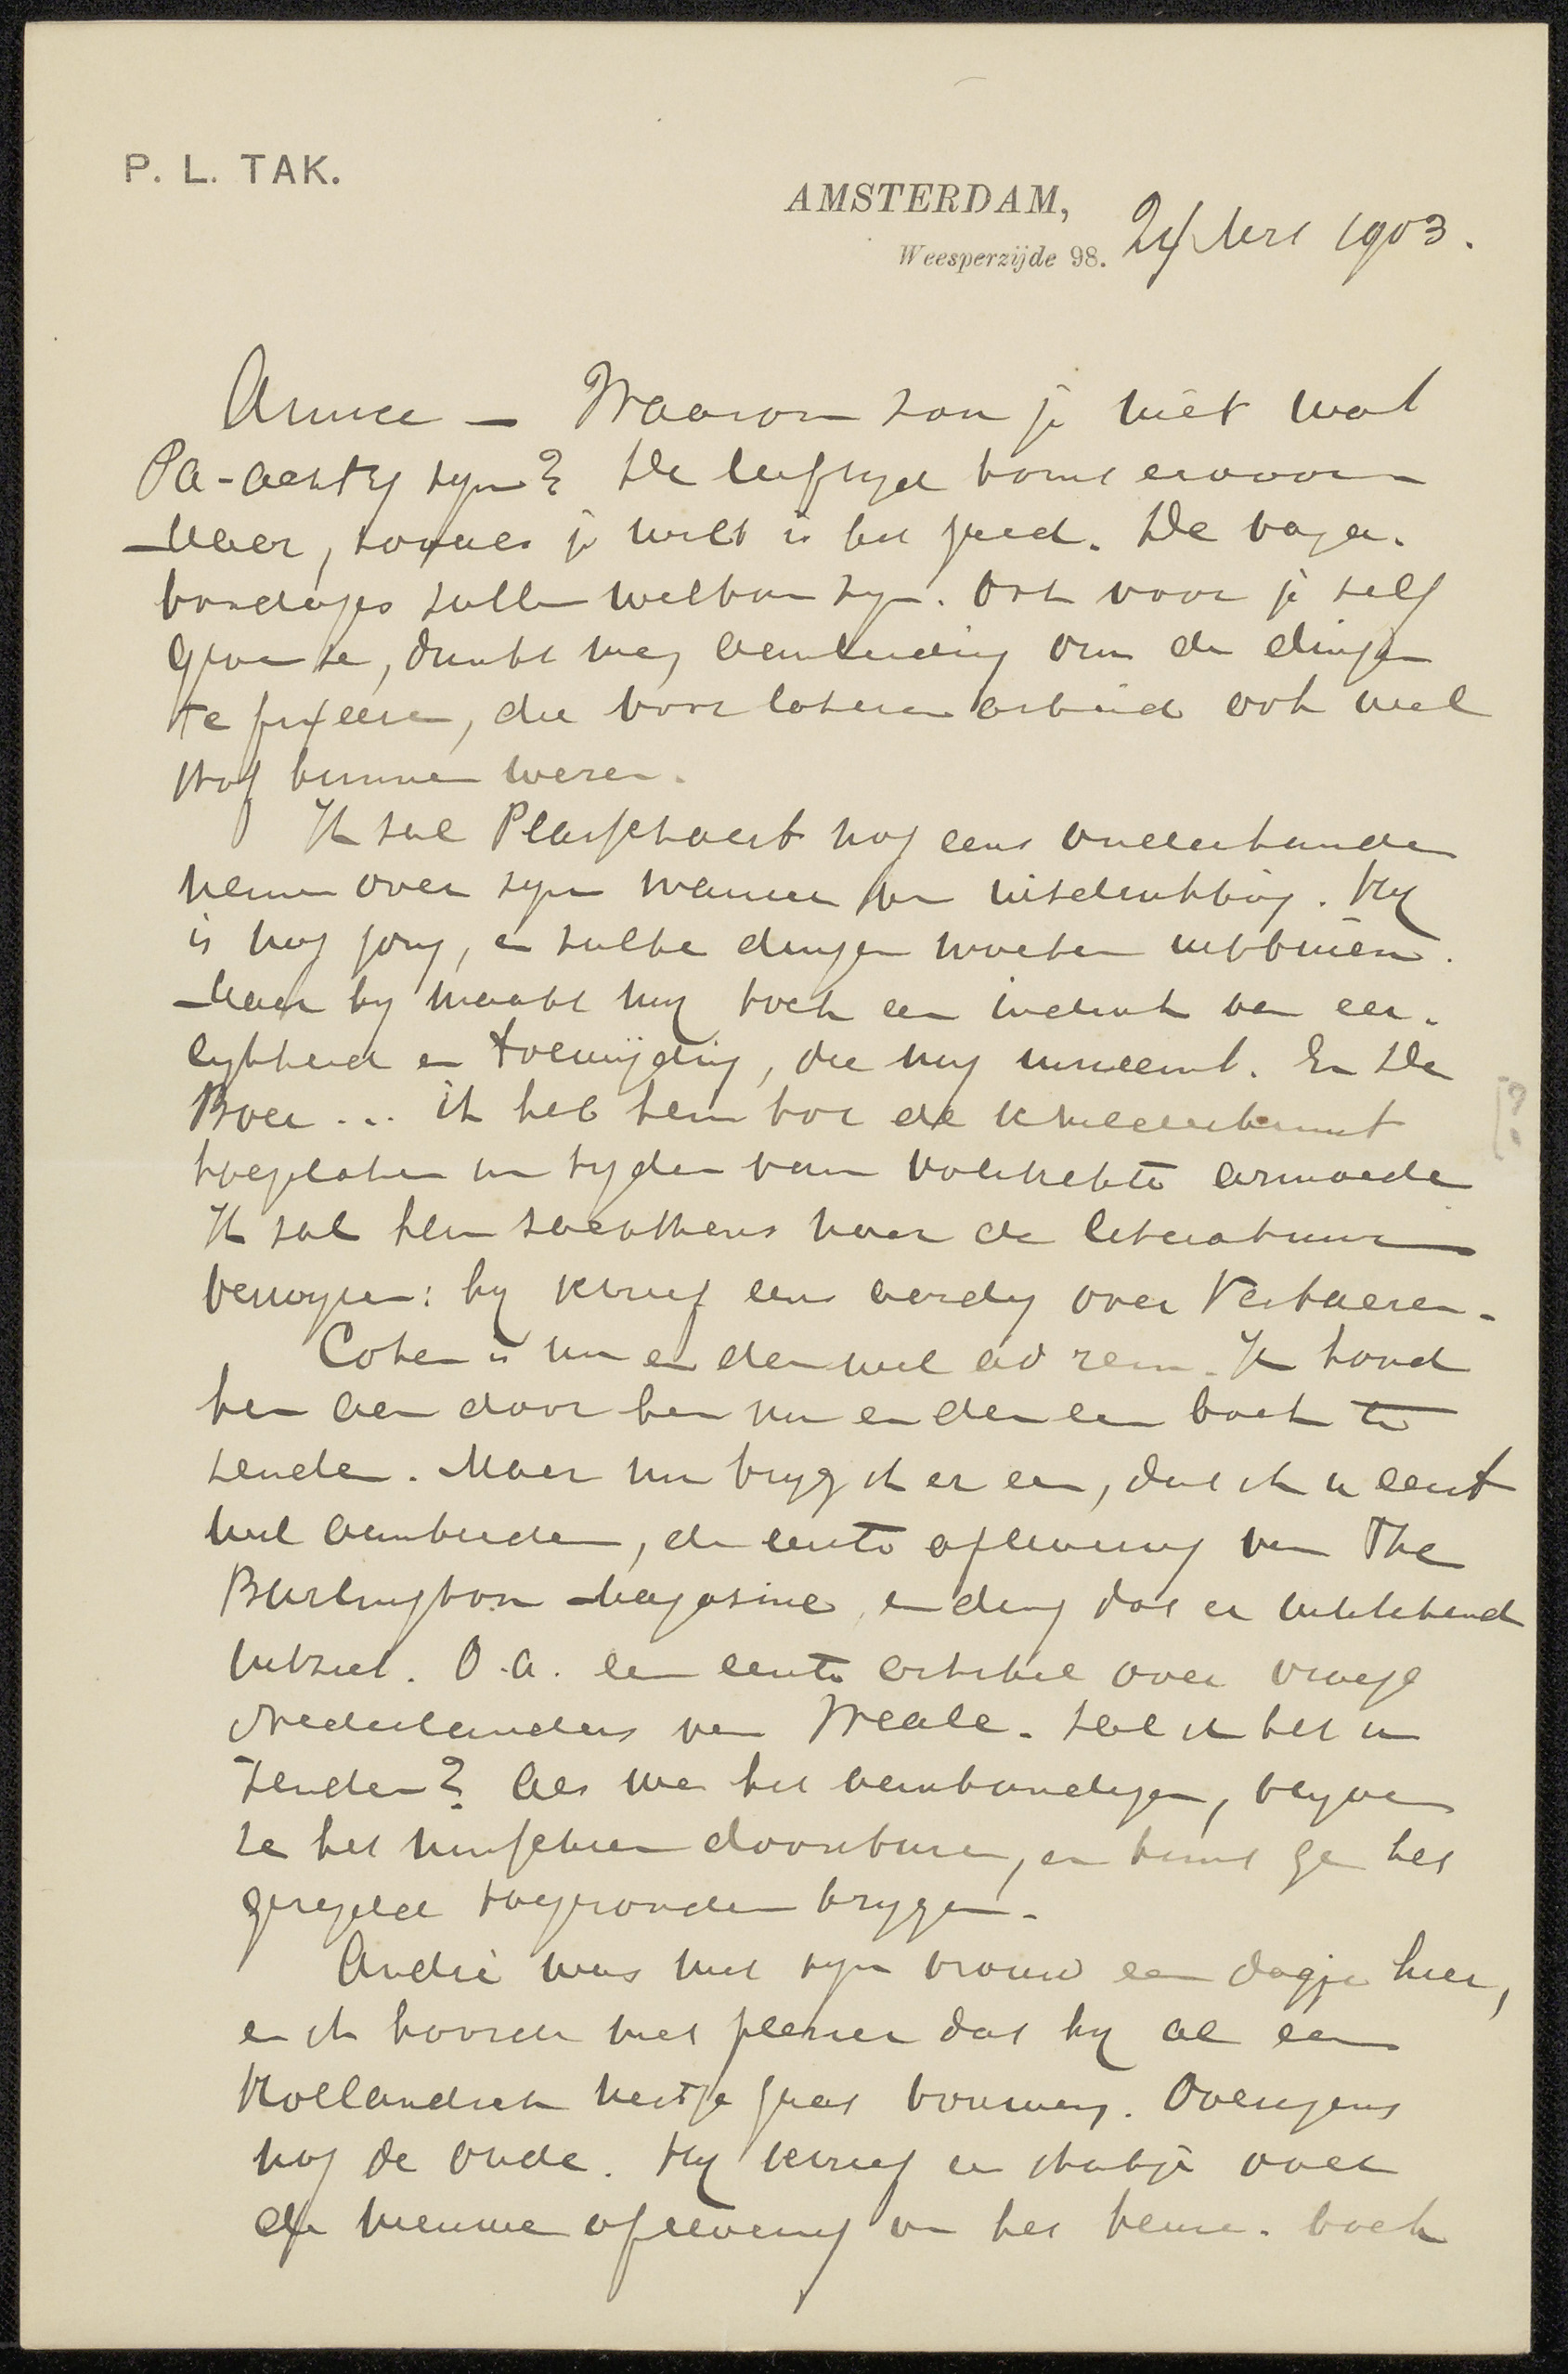 P. L. TAK.
AMSTERDAM,
Weesperzijde 98. 24 Mrt 1903.
Amice — Waarom zou je niet wat
Pa-achtig zyn? De leeftyd komt ervoor
Maar, zooals je wilt is het goed. De vaga-
bondages zullen welkom zyn. Ook voor je zelf
geven ze, dunkt mey, aanleiding om de dingen
te fixeeren, die voor lateren arbeid ook wel
stof kunnen wezen.
Ik zal Plasschaert nog eens onderhanden
nemen over zyn manier van uitdrukking. Hy
is nog jong, en zulke dingen moeten uitbruien.
Maar hy maakt my toch een indruk van eer-
lykheid en toewijding, die my inneemt. En De
Boer ... ik heb hem tot de schilderkunst
toegelaten in tyden van volstrekte armoede
Ik zal hem zachtkens naar de literatuur
verwyzen: hy schreef eens aardig over Verhaeren.
Cohen is nu en dan wel ad rem. Ik houd
hem aan door hem nu en dan een boek te
zenden. Maar nu kryg ik er een, dat ik u eerst
wil aanbieden, de eerste aflevering van The
Burlington Magazine, een ding dat er uitstekend
uitziet. O.a. een eerste artikel over vroege
Nederlanders van Weale. Zal ik het u
zenden? Als we het aankondigen, blyven
ze het misschien doorsturen, en kunt ge het
geregeld toegezonden krygen.
André was met zyn vrouw een dagje hier,
en ik hoorde met plezier dat hy al een
Hollandsch nestje gaat bouwen. Overigens
nog de oude. Hy schreef een stukje over
de nieuwe aflevering van het keur-boek